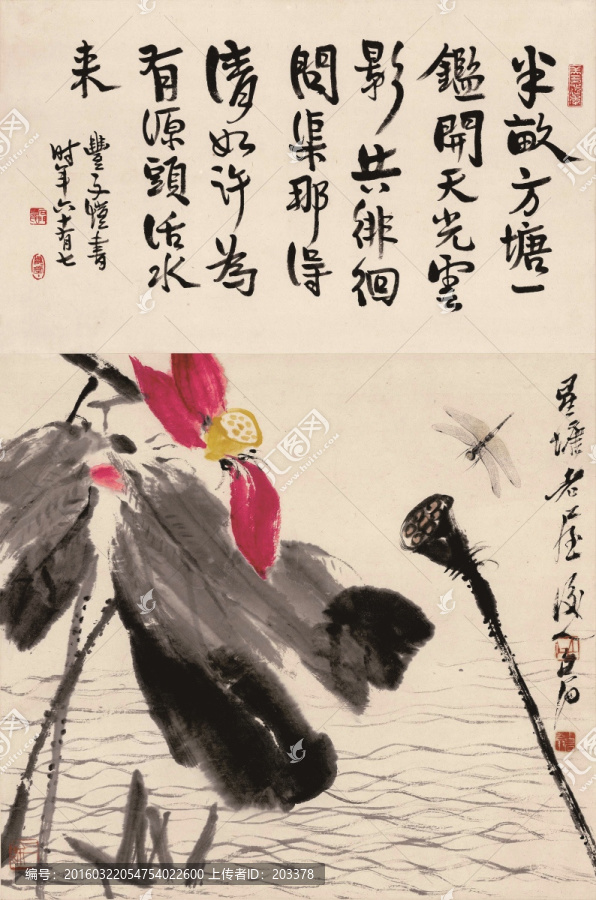 半畝方塘一
鑑開天光雲
影共徘徊
問渠那得
清如许為
有源頭活水
来
豐子愷書
时年六十有七
星塘老屋後人白石
汇图网
www.huitu.com
编号:20160322054754022600 上传者ID:203378